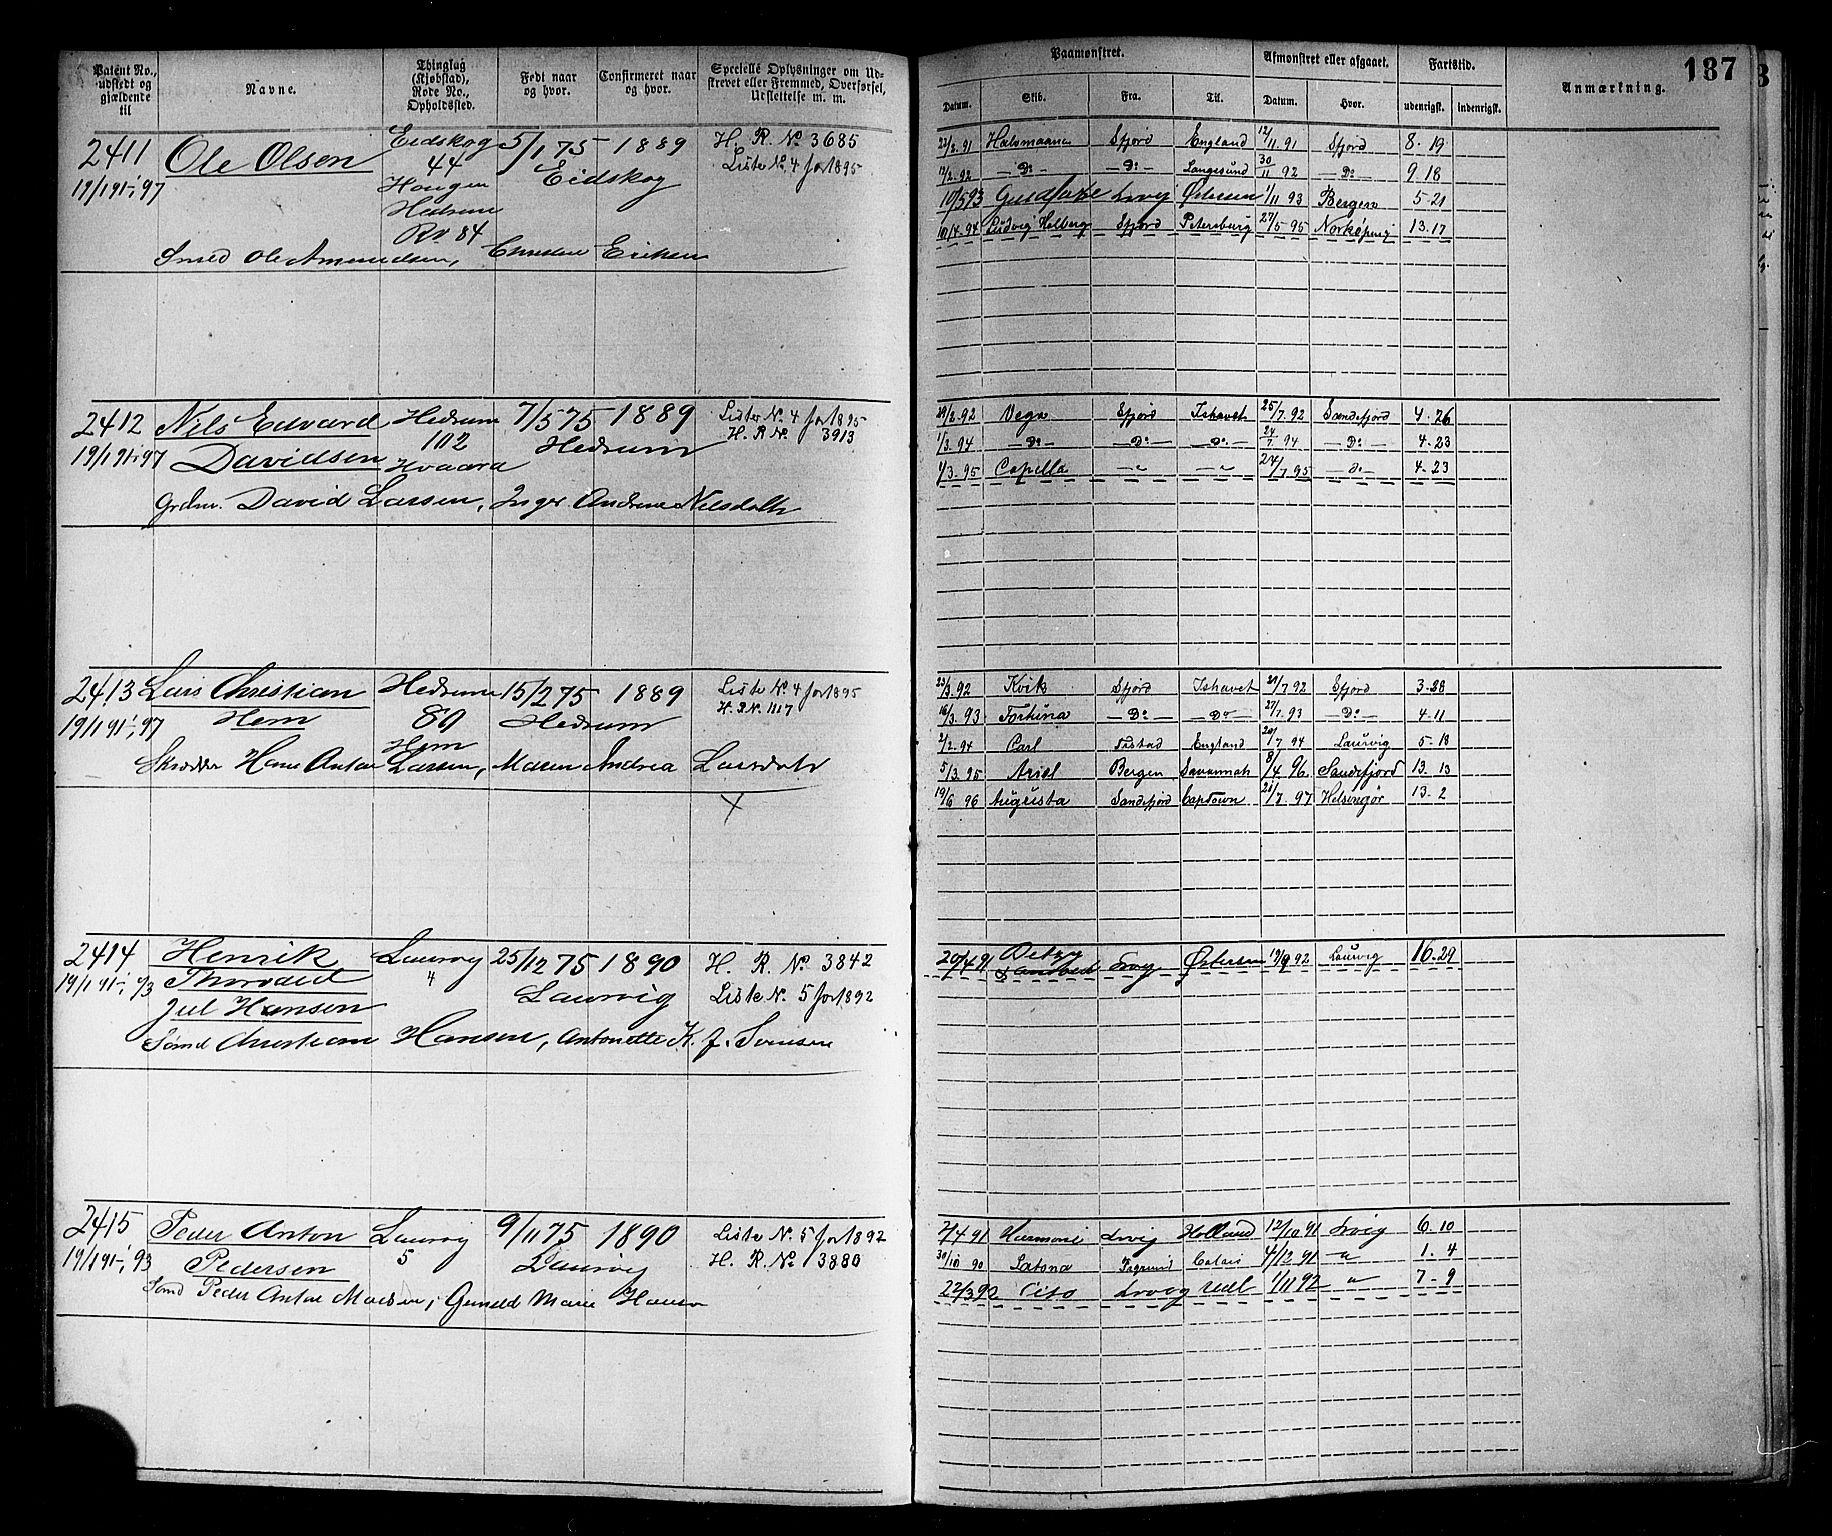 187
Patent No., udstedt og gjældende til
Navne.
Thinglag (Kjøbstad), Rode No., Opholdssted.
Født naar og hvor.
Confirmeret naar og hvor.
Specielle Oplysninger om Udskrevet eller Fremmed, Overførsel, Udslettelse m. m.
Paamønstret.
Afmønstret eller afgaaet.
Fartstid.
Anmærkning.
Datum. Skib. Fra. Til. Datum. Hvor. udenrigsk. indenrigsk.
2411 Ole Olsen Eidskog 5/1 75 1889 H. R. No 3685
19/1 91-, 97 44 Eidskog Liste No. 4 for 1895
Haugen
Hedrum
Ro 84
Smed Ole Amundsen, Christine Eriksen
22/2. 91 Halsmaanen Sfjord England 12/11. 91 Sfjord 8. 19
17/2. 92 —Do— —Do: Langesund 30/11 92 —Do— 9. 18
10/5 93 Lrvig Østersøen 1/11 93 Bergen 5-21
10/4. 94 Ludvig Holberg Sfjord Petersburg 27/5 95 Norköping 13. 17
2412 Nils Edvard Hedrum 7/5 75 1889 Liste No. 4 for 1895
19/1 91-, 97 Davidsen 102 Hedrum H. R No 3913
Hvaara
Grdm. David Larsen, Inger Andrine Nilsdatter
29/2. 92 Vega Sfjord Ishavet 25/7. 92 Sandefjord 4-26
1/3. 94 —Do— —Do— —Do:— 24/7. 94 —Do— 4. 23
4/3. 95 Capella —"— —"— 24/7 95 —Do— 4-23
2413 Lars Christian Hedrum 15/2 75 1889 Liste No. 4 for 1895
19/1 91-, 97 Hem 89 Hedrum H. R No. 1117
Hem
Skrædder Hans Anton Larsen, Maren Andrea Larsdatr
23/3. 92 Kvik Sfjord Ishavet 29/7. 92 Sfjord 3-28
16/3. 93 Fortuna —Do— —Do— 27/7. 93 —Do— 4. 11
2/2. 94 Carl England 20/7 94 Laurvig 5-18
5/3. 95 Ariel Bergen Savannah 8/4. 96. Sandefjord 13. 13
19/6 96 Augusta Sandefjord Captown 21/7. 97 Helsingør 13. 2
2414 Henrik Laurvig 25/12 75 1890 H. R. No. 3842
19/1 91-, 9/3 Thorvald 4 Laurvig Liste No. 5 for 1892
Jul Hansen
Sømd Christian Hansen, Antonette K. J.
20/4 91 Lrvig Østersøen 19/9 92 Laurvig 16. 29
2415 Peder Anton Laurvig 9/11 75 1890 Liste No. 5 for 1892
19/1 91-, 93 Pedersen 5 Laurvig H. R. No. 3880
Sømd Peder Anton Madsen, Gunild Marie Hansen
7/4 91 Harmoni Lrvig Holland 12/10 91 Lrvig 6. 10
30/10 90 Latona Calais 4/12 91 " 1. 4
22/3 92 Cito Lrvig Udl 1/11 92 " 7-9